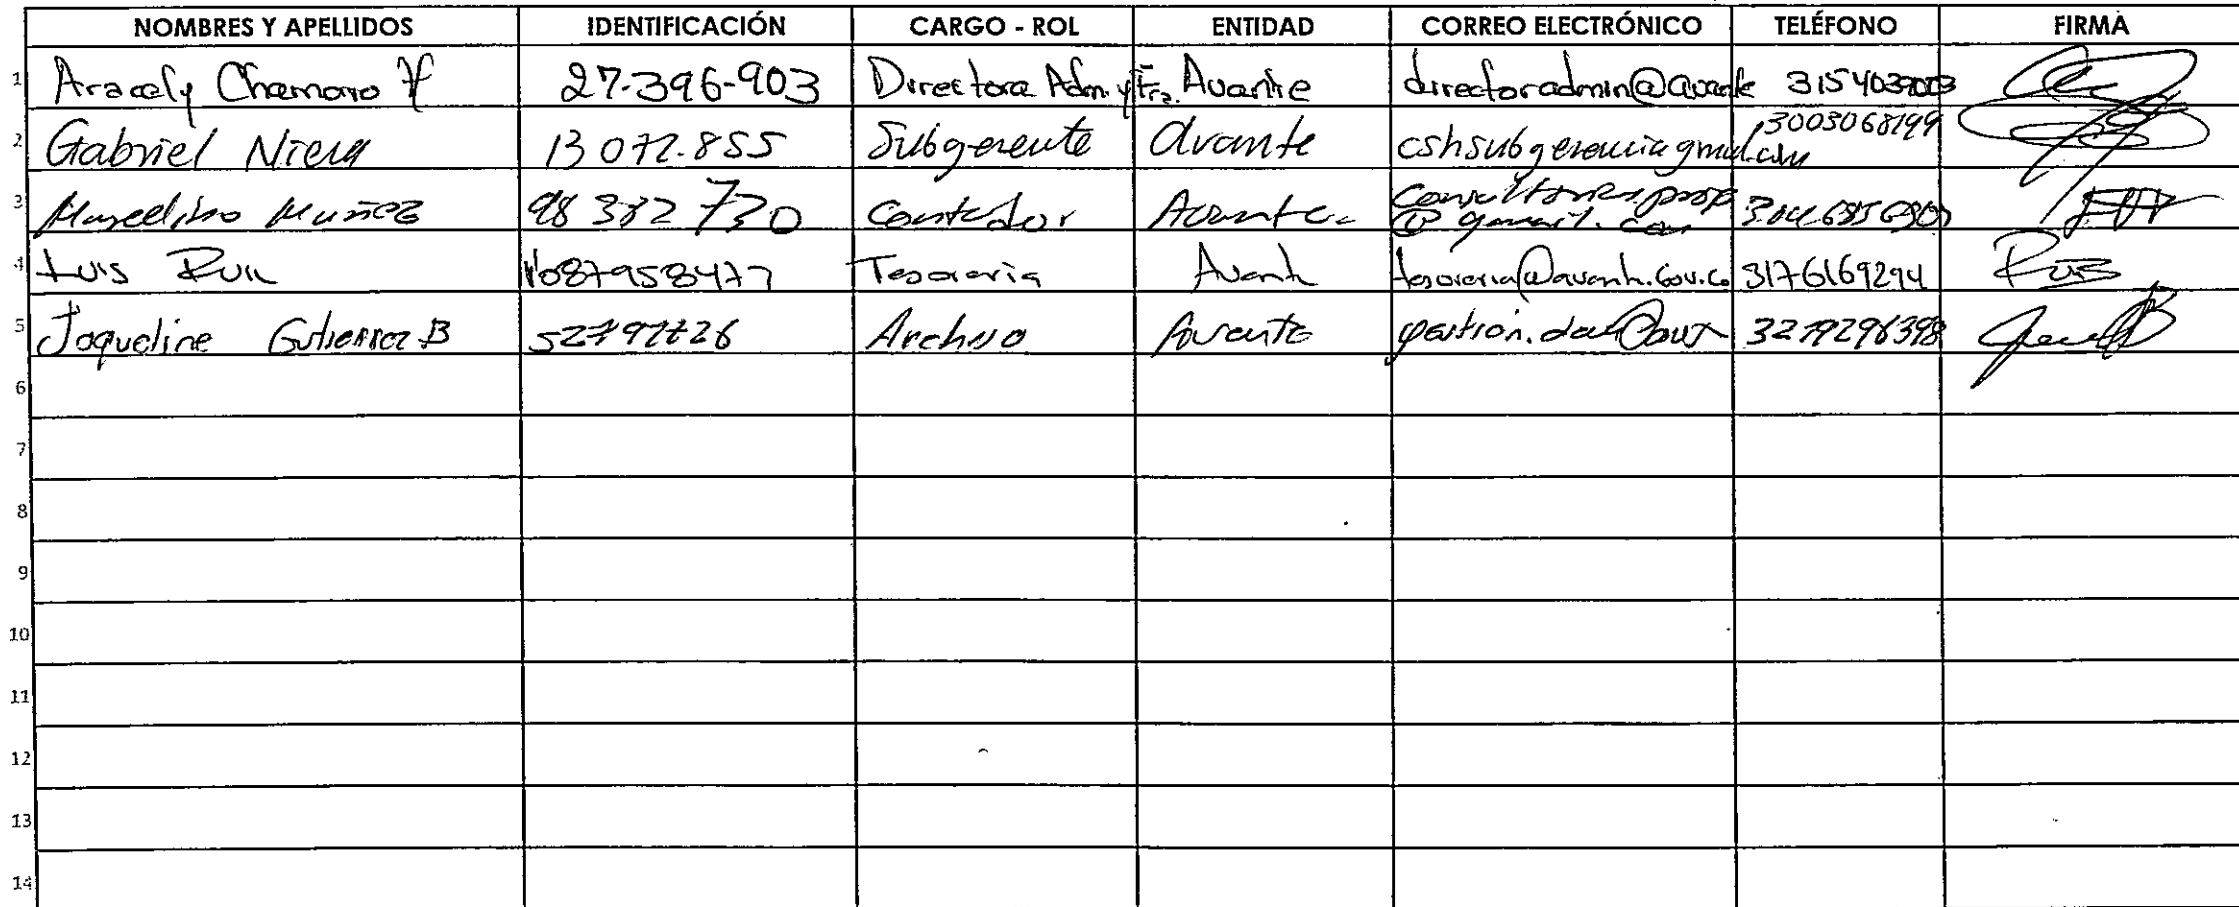 NOMBRES Y APELLIDOS IDENTIFICACIÓN CARGO - ROL ENTIDAD CORREO ELECTRÓNICO TELÉFONO FIRMA
1 Aracely Chamorro 27.396-903 Directora Adm. y Fra. Avante directoradmin@avante
2 Gabriel 13 072.855 Subgerente Avante cshsubgerencia gmail.com 3003068199
3 Marcelino Muñoz 98 382 730 Contador Avante @ gmail.com
4 Luis Ruiz 1087958477 Tesoreria Avante tesoreria@avante.gov.co 3176169294
5 Jaqueline Gutierrez B Archivo Avante
6
7
8
9
10
11
12
13
14